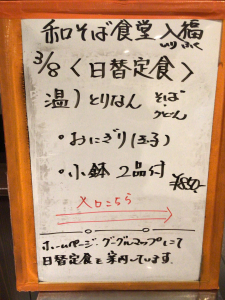 和そば食堂 入福
3/8 〈日替定食〉
温) とりなん そば・うどん
・おにぎり(玉子)
・小鉢 2品付
¥850-
入口こちら
ホームページ、グーグルマップにて
日替定食を案内しています。